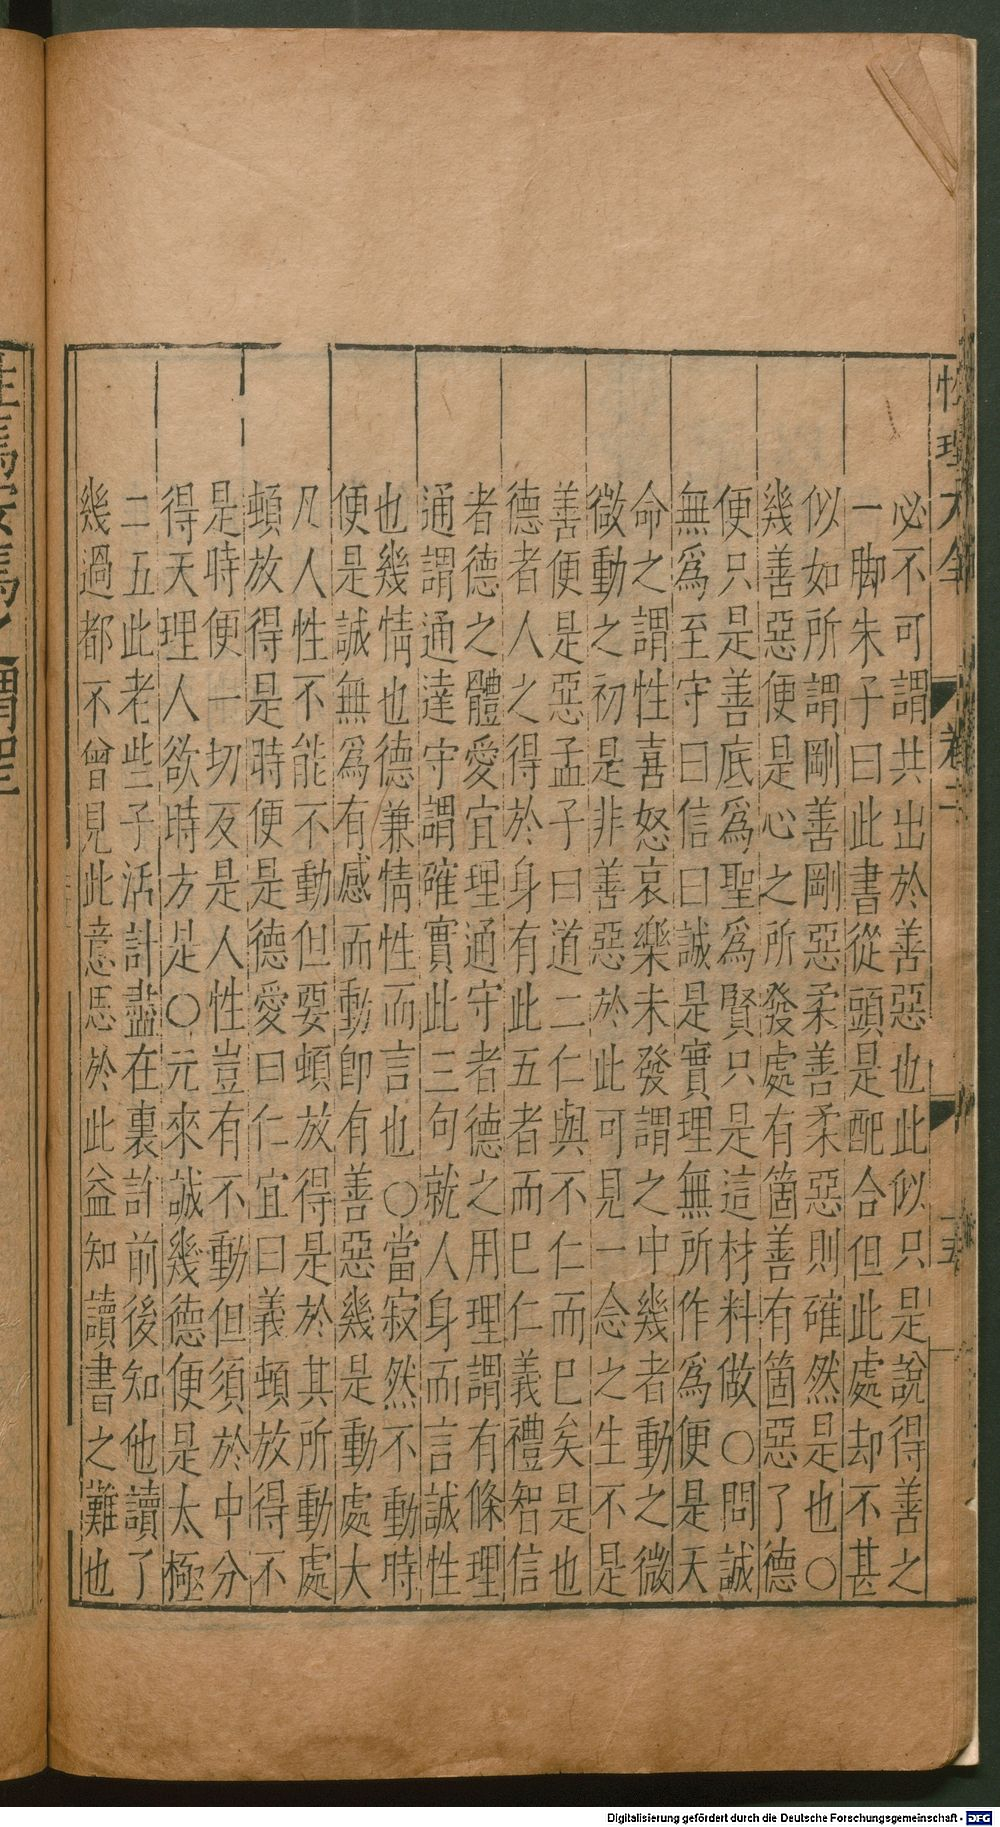 性理大全 卷二
必不可謂共出於善惡也此似只是說得善之
一脚朱子曰此書從頭是配合但此處却不甚
似如所謂剛善剛惡柔善柔惡則確然是也○
幾善惡便是心之所發處有箇善有箇惡了德
便只是善底爲聖爲賢只是這材料做○問誠
無爲至守曰信曰誠是實理無所作爲便是天
命之謂性喜怒哀樂未發謂之中幾者動之微
微動之初是非善惡於此可見一念之生不是
善便是惡孟子曰道二仁與不仁而已矣是也
德者人之得於身有此五者而已仁義禮智信
者德之體愛宜理通守者德之用理謂有條理
通謂通達守謂確實此三句就人身而言誠性
也幾情也德兼情性而言也○當寂然不動時
便是誠無爲有感而動卽有善惡幾是動處大
凡人性不能不動但要頓放得是於其所動處
頓放得是時便是德愛曰仁宜曰義頓放得不
是時便一切反是人性豈有不動但須於中分
得天理人欲時方是○元來誠幾德便是太極
二五此老些子活計盡在裏許前後知他讀了
幾過都不曾見此意思於此益知讀書之難也
Digitalisierung gefördert durch die Deutsche Forschungsgemeinschaft - DFG